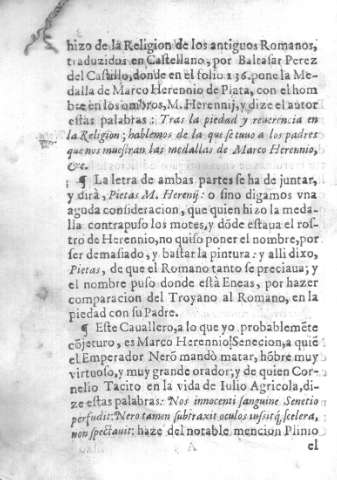 hizo de la Religion de los antiguos Romanos,
traduzidos en Castellano, por Baltasar Perez
del Castillo, donde en el folio 136. pone la Me-
dalla de Marco Herennio de Plata, con el hom
bre en los ombros, M. Herennij, y dize el autor
estas palabras: Tras la piedad y reuerencia en
la Religion; hablemos de la que se tuuo a los padres
que nos muestran las medallas de Marco Herennio,
&c.
¶ La letra de ambas partes se ha de juntar,
y dirà, Pietas M. Herenij: o sino digamos vna
aguda consideracion, que quien hizo la meda-
lla contrapuso los motes, y dõde estaua el ros-
tro de Herennio, no quiso poner el nombre, por
ser demasiado, y bastar la pintura: y alli dixo,
Pietas, de que el Romano tanto se preciaua; y
el nombre puso donde està Eneas, por hazer
comparacion del Troyano al Romano, en la
piedad con su Padre.
¶ Este Cauallero, a lo que yo probablemẽte
cõjeturo, es Marco Herennio Senecion, a quiẽ
el Emperador Nerõ mandò matar, hõbre muy
virtuoso, y muy grande orador; y de quien Cor-
nelio Tacito en la vida de Iulio Agricola, di-
ze estas palabras: Nos innocenti sanguine Senetio
perfudit: Nero tamen subtraxit oculos iussitq́; scelera,
non spectauit: haze del notable mencion Plinio
A el